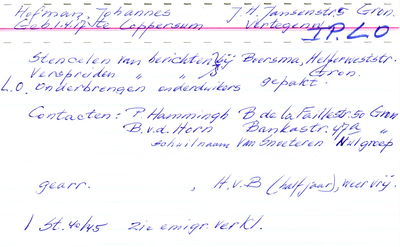 Hofman, Johannes J.H. Jansenstr. 5 Gron.
Geb. 1.4.17 te Loppersum Vertegenw. I.P. LO
Stencilen van berichten bij Boersma, Helperweststr.
Verspreiden " " Gron.
L.O. Onderbrengen onderduikers gepakt.
Contacten: P. Hammingh B de la Faillestr. 50 Gron
B.v.d. Horn Bankastr. 47a "
schuilnaam Van Sneeteren Nulgroep
gearr. , H.v.B (half jaar), weer vrij.
1 St. 40/45 zie emigr. verkl.